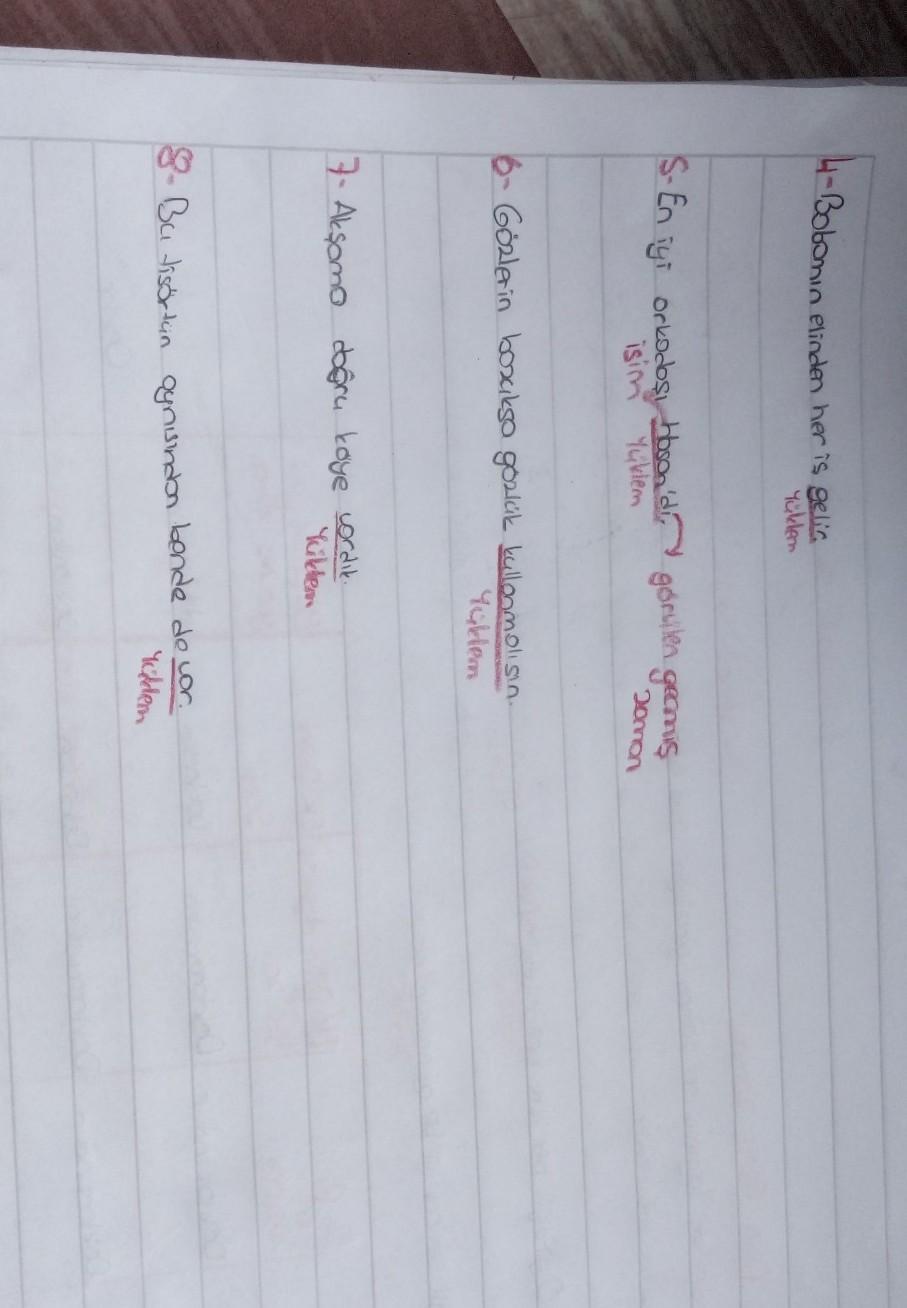 4- Babamın elinden her iş gelir.
Yüklem
5- En iyi arkadaşı Hasan'dı. → görülen geçmiş
isim Yüklem zaman
6- Gözlerin bozuksa gözlük kullanmalısın.
Yüklem
7- Akşama doğru köye vardık.
Yüklem
8- Bu tişörtün aynısından bende de var.
Yüklem